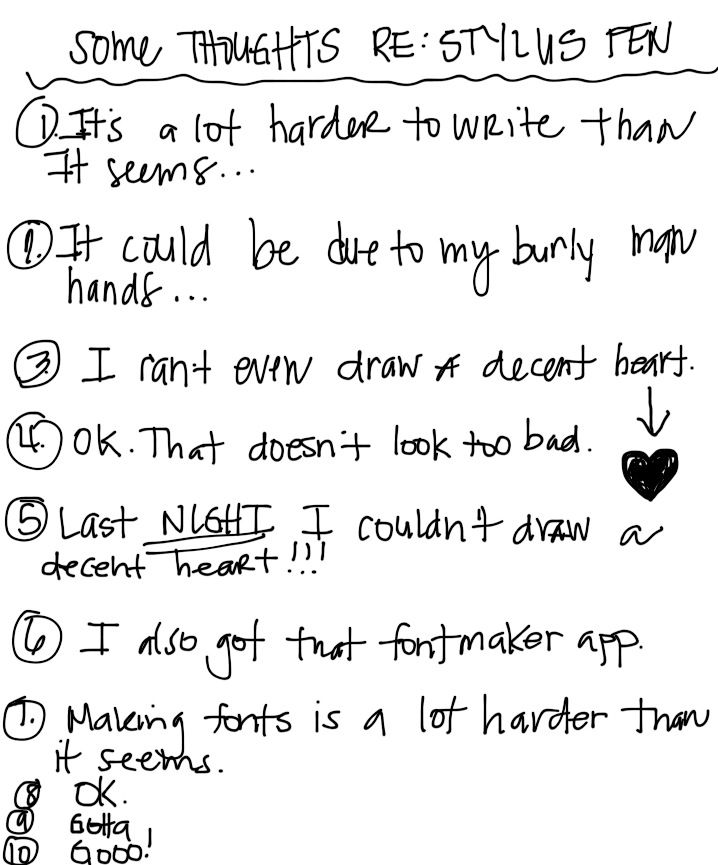 SOME THOUGHTS RE: STYLUS PEN
1. It's a lot harder to write than
It seems...
2. It could be due to my burly man
hands...
3. I can't even draw a decent heart.
4. OK. That doesn't look too bad.
5 Last NIGHT I couldn't draw a
decent heart!!!
6 I also got that fontmaker app.
7. Making fonts is a lot harder than
it seems.
8 OK.
9 Gotta
10 Gooo!